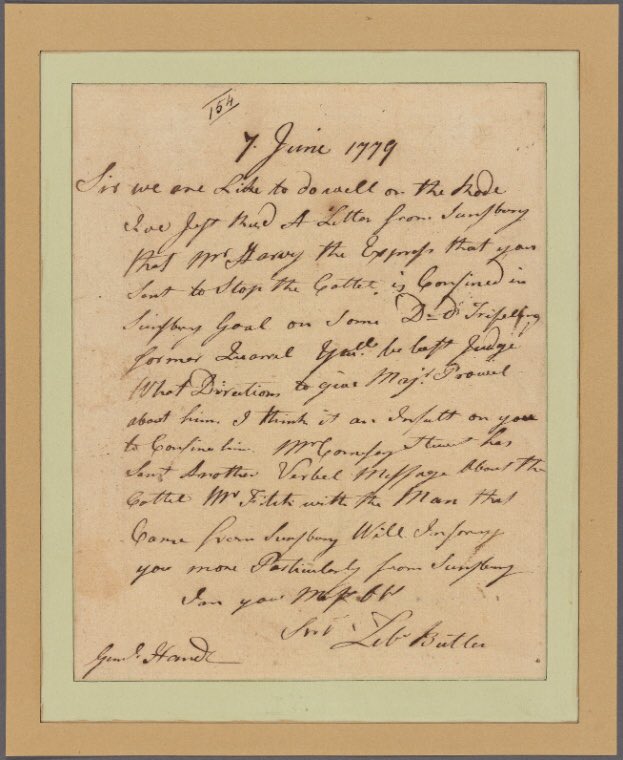 154
7. June 1779
Sir we are Like to do well on the Rode
I've Just Recd A Letter from Sunsbury
that Mr Harvy the Express that you
Sent to Stop the Cattel, is Confined in
Sunsbury Goal on Some D—d Trifelling
former Quarrel Youll be best Judge
What Directions to give Majr Prowel
about him. I think it an Insult on you
to Confine him. Mr Comesary has
Sent Another Verbel Message About the
Cattel Mr Fitch with the Man that
Came from Sunsbury Will Inform
you more Particularly from Sunsbury
I am your Most Obt
Servt Zebn Butler
Genl. Hand